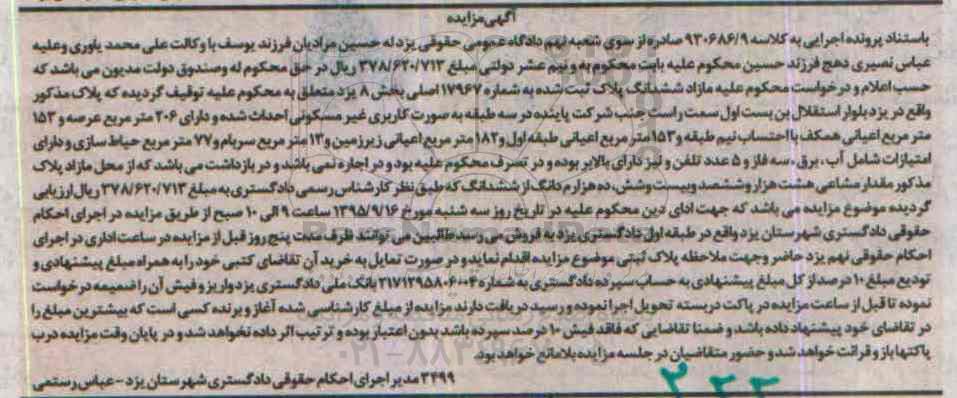 آگهی مزایده
باستناد پرونده اجرایی به کلاسه ۹۳۰۶۸۶/۹ صادره از سوی شعبه نهم دادگاه عمومی حقوقی یزد له حسین مرادیان فرزند یوسف با وکالت علی محمد یاوری و علیه
عباس نصیری دهج فرزند حسین محکوم علیه بابت محکوم به و نیم عشر دولتی مبلغ ۳۷۸/۶۲۰/۷۱۳ ریال در حق محکوم له وصندوق دولت مدیون می باشد که
حسب اعلام و درخواست محکوم علیه مازاد ششدانگ پلاک ثبت شده به شماره ۱۷۹۶۷ اصلی بخش ۸ یزد متعلق به محکوم علیه توقیف گردیده که پلاک مذکور
واقع در یزد بلوار استقلال بن بست اول سمت راست جنب شرکت پاینده در سه طبقه به صورت کاربری غیر مسکونی احداث شده و دارای ۲۰۶ متر مربع عرصه و ۱۵۳
متر مربع اعیانی همکف با احتساب نیم طبقه و ۱۵۳ متر مربع اعیانی طبقه اول و ۱۸۲ متر مربع اعیانی زیرزمین و ۱۲ متر مربع سربام و ۷۷ متر مربع حیاط سازی و دارای
امتیازات شامل آب ، برق ، سه فاز و ۵ عدد تلفن و نیز دارای بالابر بوده و در تصرف محکوم علیه بود و در اجاره نمی باشد و در بازداشت می باشد که از محل مازاد پلاک
مذکور مقدار مشاعی هشت هزار و ششصد و بیست و شش ، ده هزارم دانگ از ششدانگ که طبق نظر کارشناس رسمی دادگستری به مبلغ ۳۷۸/۶۲۰/۷۱۳ ریال ارزیابی
گردیده موضوع مزایده می باشد که جهت ادای دین محکوم علیه در تاریخ روز سه شنبه مورخ ۱۳۹۵/۹/۱۶ ساعت ۹ الی ۱۰ صبح از طریق مزایده در اجرای احکام
حقوقی دادگستری شهرستان یزد واقع در طبقه اول دادگستری یزد به فروش می رسد طالبین می توانند ظرف مدت پنج روز قبل از مزایده در ساعت اداری در اجرای
احکام حقوقی نهم یزد حاضر و جهت ملاحظه پلاک ثبتی موضوع مزایده اقدام نماید و در صورت تمایل به خرید آن تقاضای کتبی خود را به همراه مبلغ پیشنهادی و
تودیع مبلغ ۱۰ درصد از کل مبلغ پیشنهادی به حساب سپرده دادگستری به شماره ۲۱۷۱۲۹۵۸۰۶۰۰۴ بانک ملی دادگستری یزد واریز و فیش آن را ضمیمه درخواست
نموده تا قبل از ساعت مزایده در پاکت دربسته تحویل اجرا نموده و رسید دریافت دارند مزایده از مبلغ کارشناسی شده آغاز و برنده کسی است که بیشترین مبلغ را
در تقاضای خود پیشنهاد داده باشد و ضمنا تقاضایی که فاقد فیش ۱۰ درصد سپرده باشد بدون اعتبار بوده و ترتیب اثر داده نخواهد شد و در پایان وقت مزایده درب
پاکتها باز و قرائت خواهد شد و حضور متقاضیان در جلسه مزایده بلامانع خواهد بود
۳۴۹۹ مدیر اجرای احکام حقوقی دادگستری شهرستان یزد - عباس رستمی